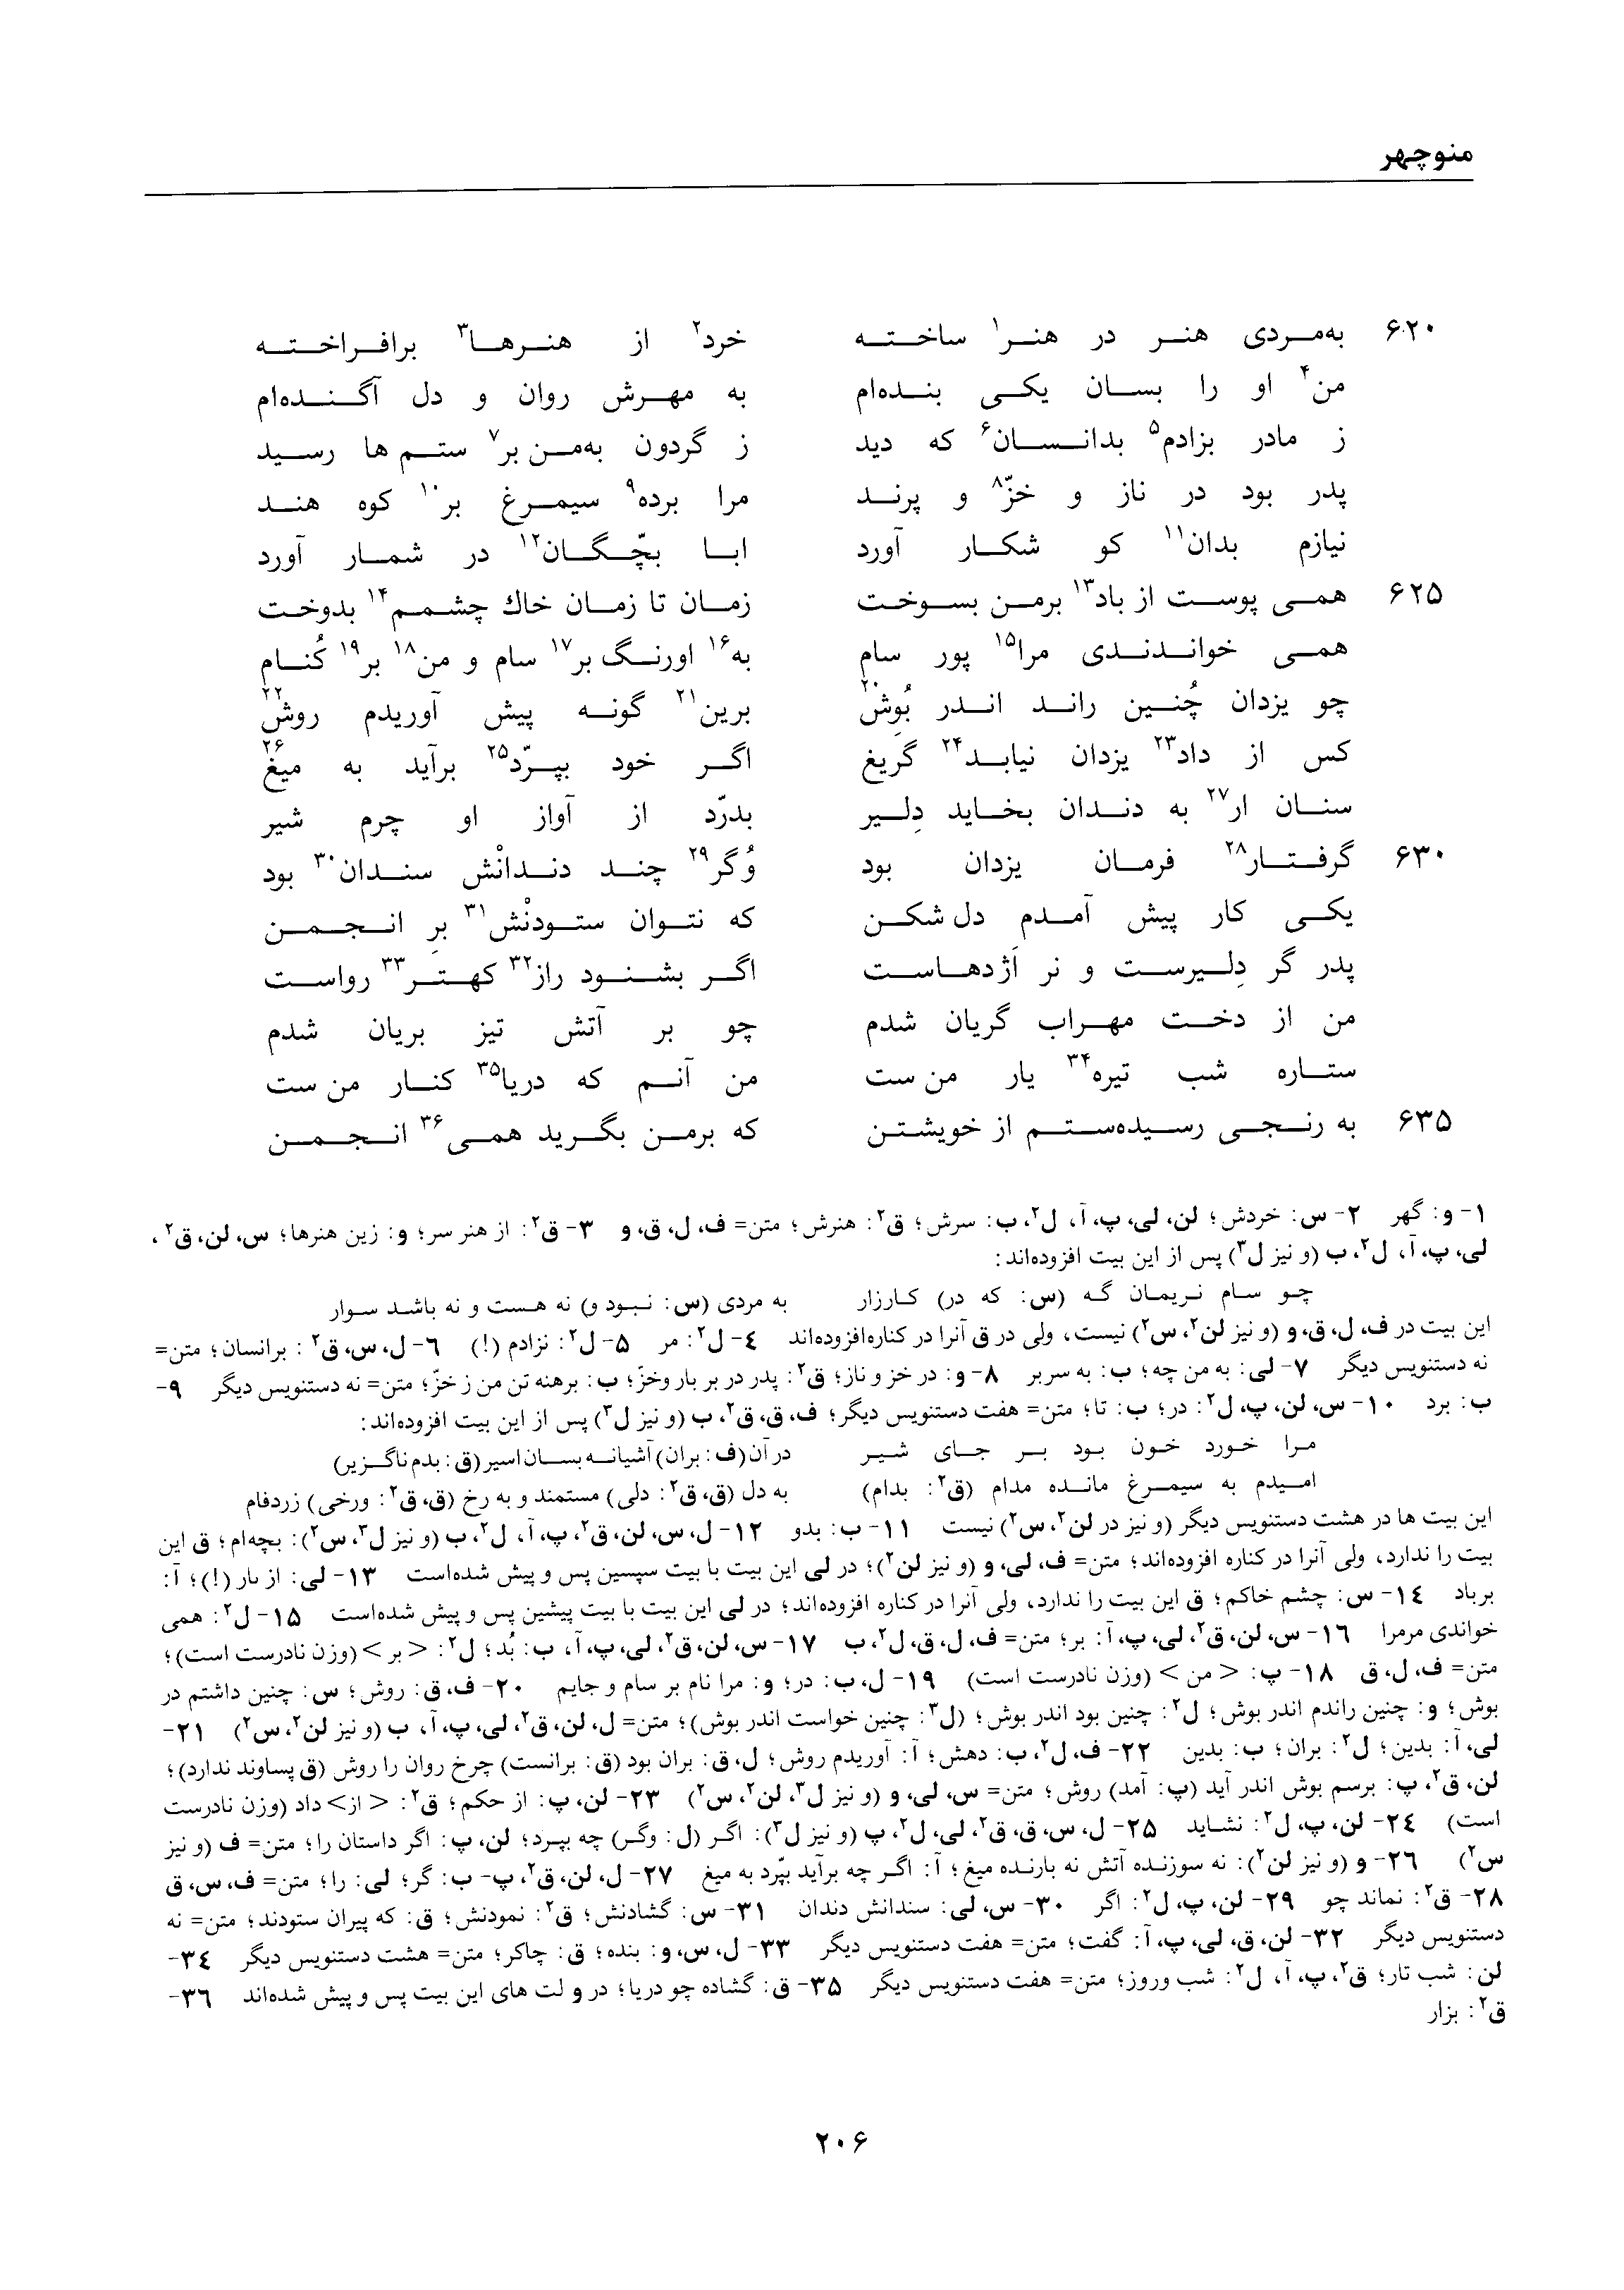 منوچهر
۶۲۰ به‌مردی هنر در هنر۱ ساخته خرد۲ از هنرها۳ برافراخته
من۴ او را بسان یکی بنده‌ام به مهرش روان و دل آگنده‌ام
ز مادر بزادم۵ بدانسان۶ که دید ز گردون به‌من بر۷ ستم ها رسید
پدر بود در ناز و خزّ۸ و پرند مرا برده۹ سیمرغ بر۱۰ کوه هند
نیازم بدان۱۱ کو شکار آورد ابا بچّگان۱۲ در شمار آورد
۶۲۵ همی پوست از باد۱۳ برمن بسوخت زمان تا زمان خاك چشمم۱۴ بدوخت
همی خواندندی مرا۱۵ پور سام به۱۶ اورنگ بر۱۷ سام و من۱۸ بر۱۹ کُنام
چو یزدان چُنین راند اندر بُوِش۲۰ برین۲۱ گونه پیش آوریدم روش۲۲
کس از داد۲۳ یزدان نیابد۲۴ گریغ اگر خود بپرّد۲۵ برآید به میغ۲۶
سنان ار۲۷ به دندان بخاید دِلیر بدرّد از آواز او چرم شیر
۶۳۰ گرفتار۲۸ فرمان یزدان بود وُگر۲۹ چند دندانْش سندان۳۰ بود
یکی کار پیش آمدم دل شکن که نتوان ستودنْش۳۱ برِ انجمن
پدر گر دِلیرست و نر اَژدهاست اگر بشنود راز۳۲ کهتر۳۳ رواست
من از دخت مهراب گریان شدم چو بر آتش تیز بریان شدم
ستاره شب تیره۳۴ یار من ست من آنم که دریا۳۵ کنار من ست
۶۳۵ به رنجی رسیده‌ستم از خویشتن که برمن بگرید همی۳۶ انجمن
۱- و: گهر ۲- س: خردش؛ لن، لی، پ، آ، ل۲، ب: سرش؛ ق۲: هنرش؛ متن= ف، ل، ق، و ۳- ق۲: از هنر سر؛ و: زین هنرها؛ س، لن، ق۲،
لی، پ، آ، ل۲، ب (و نیز ل۳) پس از این بیت افزوده‌اند:
چو سام نریمان گه (س: که در) کارزار به مردی (س: نبود و) نه هست و نه باشد سوار
این بیت در ف، ل، ق، و (و نیز لن۲، س۲) نیست، ولی در ق آنرا در کناره‌افزوده‌اند ٤- ل۲: مر ۵- ل۲: نزادم (!) ٦- ل، س، ق۲: برانسان؛ متن=
نه دستنویس دیگر ۷- لی: به من چه؛ ب: به سربر ۸- و: در خز و ناز؛ ق۲: پدر در بر بار وخزّ؛ ب: برهنه تن من ز خزّ؛ متن= نه دستنویس دیگر ۹-
ب: برد ۱۰- س، لن، پ، ل۲: در؛ ب: تا؛ متن= هفت دستنویس دیگر؛ ف، ق، ق۲، ب (و نیز ل۳) پس از این بیت افزوده‌اند:
مرا خورد خون بود بر جای شیر در آن (ف: بران) آشیانه بسان اسیر (ق: بدم ناگزیر)
امیدم به سیمرغ مانده مدام (ق۲: بدام) به دل (ق، ق۲: دلی) مستمند و به رخ (ق، ق۲: ورخی) زردفام
این بیت ها در هشت دستنویس دیگر (و نیز در لن۲، س۲) نیست ۱۱- ب: بدو ۱۲- ل، س، لن، ق۲، پ، آ، ل۲، ب (و نیز ل۳، س۲): بچه‌ام؛ ق این
بیت را ندارد، ولی آنرا در کناره افزوده‌اند؛ متن= ف، لی، و (و نیز لن۲)؛ در لی این بیت با بیت سپسین پس و پیش شده‌است ۱۳- لی: از بار (!)؛ آ:
برباد ۱٤- س: چشم خاکم؛ ق این بیت را ندارد، ولی آنرا در کناره افزوده‌اند؛ در لی این بیت با بیت پیشین پس و پیش شده‌است ۱۵- ل۲: همی
خواندی مرمرا ۱٦- س، لن، ق۲، لی، پ، آ: بر؛ متن= ف، ل، ق، ل۲، ب ۱۷- س، لن، ق۲، لی، پ، آ، ب: بُد؛ ل۲: < بر > (وزن نادرست است)؛
متن= ف، ل، ق ۱۸- پ: < من > (وزن نادرست است) ۱۹- ل، ب: در؛ و: مرا نام بر سام و جایم ۲۰- ف، ق: روش؛ س: چنین داشتم در
بوش؛ و: چنین راندم اندر بوش؛ ل۲: چنین بود اندر بوش؛ (ل۳: چنین خواست اندر بوش)؛ متن= ل، لن، ق۲، لی، پ، آ، ب (و نیز لن۲، س۲) ۲۱-
لی، آ: بدین؛ ل۲: بران؛ ب: بدین ۲۲- ف، ل۲، ب: دهش؛ آ: آوریدم روش؛ ل، ق: بران بود (ق: برانست) چرخ روان را روش (ق پساوند ندارد)؛
لن، ق۲، پ: برسم بوش اندر آید (پ: آمد) روش؛ متن= س، لی، و (و نیز ل۳، لن۲، س۲) ۲۳- لن، پ: از حکم؛ ق۲: < از> داد (وزن نادرست
است) ۲٤- لن، پ، ل۲: نشاید ۲۵- ل، س، ق، ق۲، لی، ل۲، پ (و نیز ل۳): اگر (ل: وگر) چه بپرد؛ لن، پ: اگر داستان را؛ متن= ف (و نیز
س۲) ۲٦- و (و نیز لن۲): نه سوزنده آتش نه بارنده میغ؛ آ: اگر چه برآید بپّرد به میغ ۲۷- ل، لن، ق۲، پ- ب: گر؛ لی: را؛ متن= ف، س، ق
۲۸- ق۲: نماند چو ۲۹- لن، پ، ل۲: اگر ۳۰- س، لی: سندانش دندان ۳۱- س: گشادنش؛ ق۲: نمودنش؛ ق: که پیران ستودند؛ متن= نه
دستنویس دیگر ۳۲- لن، ق، لی، پ، آ: گفت؛ متن= هفت دستنویس دیگر ۳۳- ل، س، و: بنده؛ ق: چاکر؛ متن= هشت دستنویس دیگر ۳٤-
لن: شب تار؛ ق۲، پ، آ، ل۲: شب وروز؛ متن= هفت دستنویس دیگر ۳۵- ق: گشاده چو دریا؛ در و لت های این بیت پس و پیش شده‌اند ۳٦-
ق۲: بزار
۲۰۶